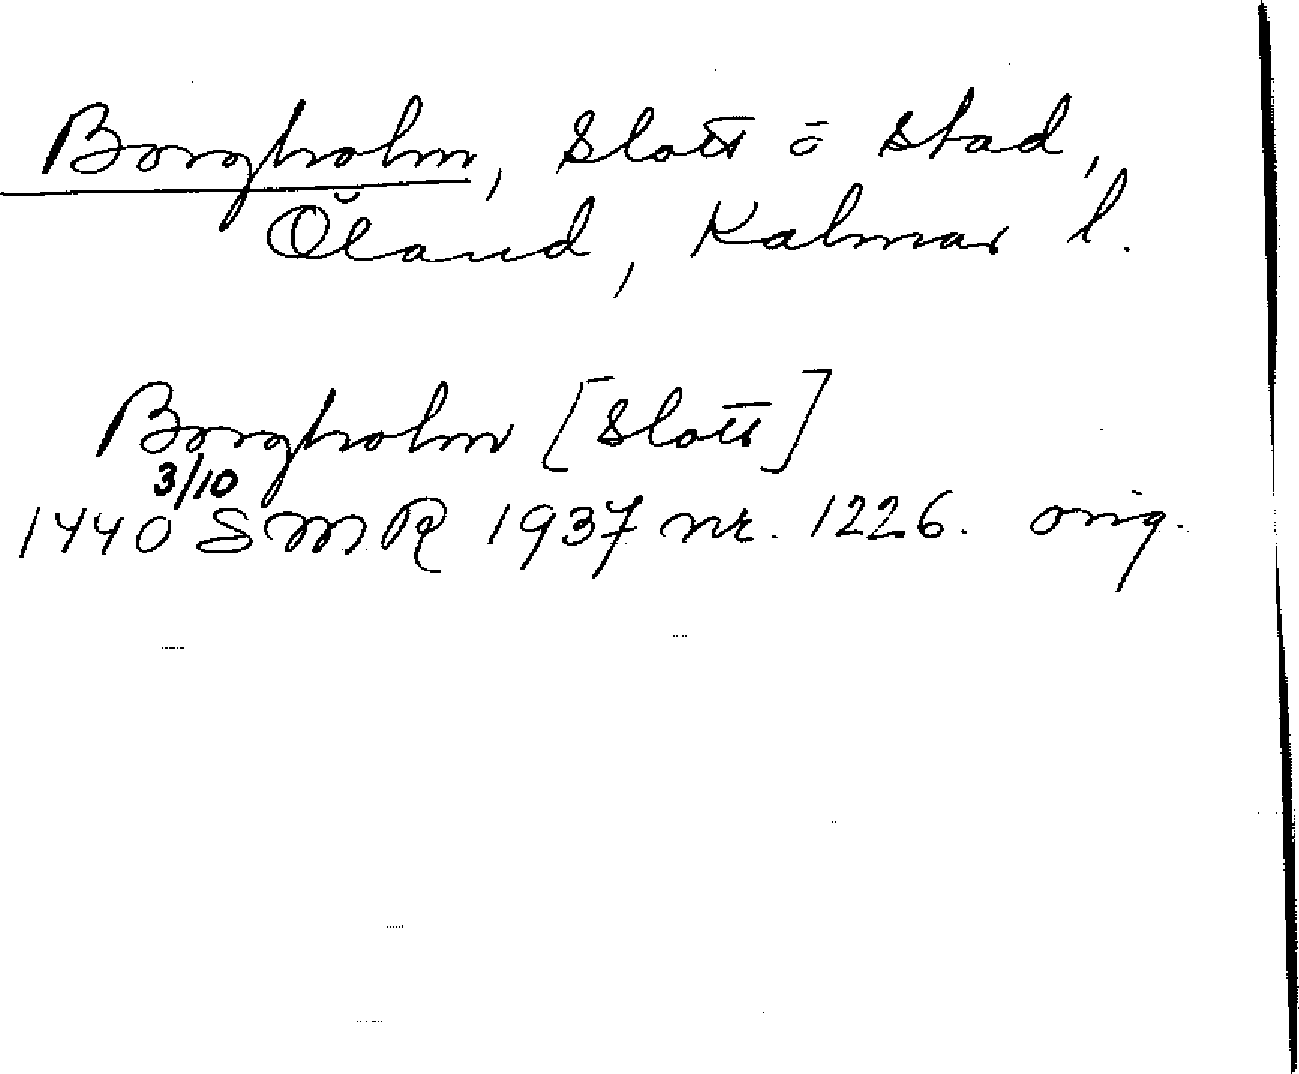 Borgholm, slott ō stad,
Öland, Kalmar l.
Borgholm [slott]
3/10
1440 SMR 1937 nr. 1226. orig.